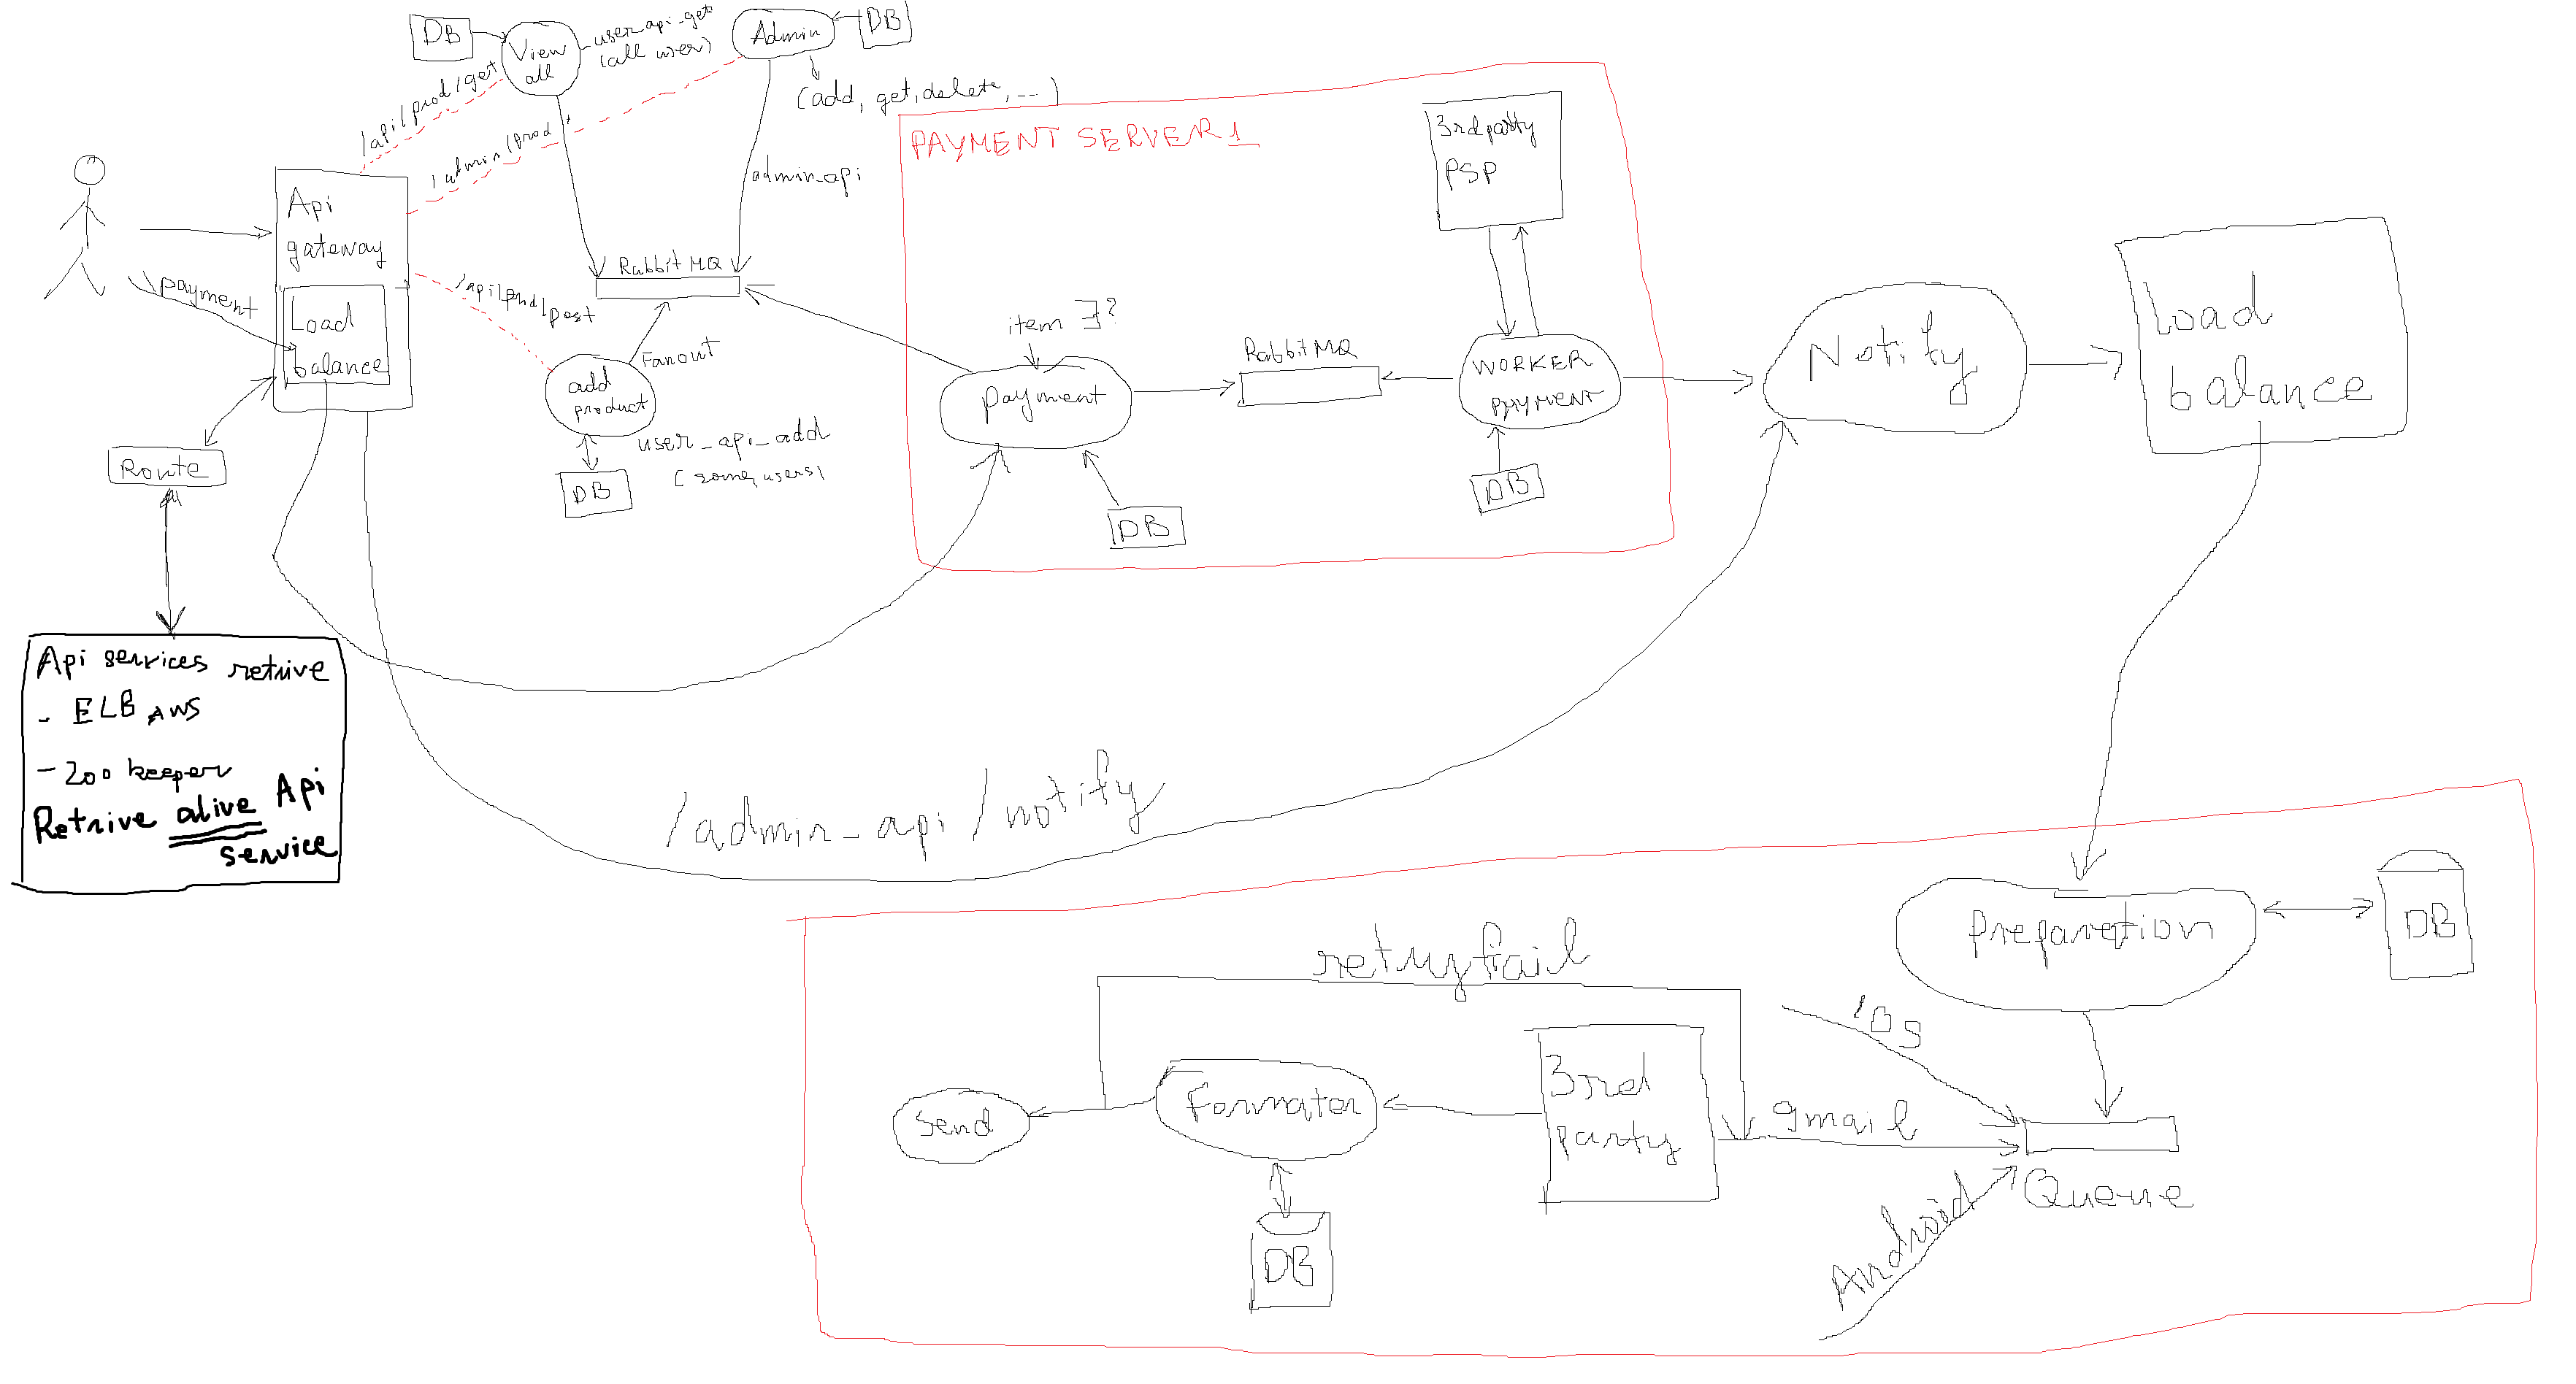 DB
View
all
user_api_get
(all user)
Admin
DB
(add, get, delete, ...)
/api/prod/get
/admin/prod
admin_api
Api
gateway
\payment
Load
balance
Rabbit MQ
/api/prod/post
Fanout
add
product
user_api_add
(some users)
DB
Route
Api services retrive
- ELB AWS
- Zoo keeper
Retrive alive Api
service
PAYMENT SERVER 1
3rd party
PSP
item ∃?
payment
RabbitMQ
WORKER
PAYMENT
DB
DB
Notify
Load
balance
/admin_api/notify
preparetion
DB
retry fail
IOS
Send
Formater
3rd
party
gmail
Queue
Android
DB